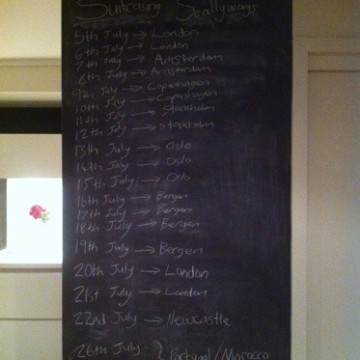 Suitcasing Scallywags
5th July → London
6th July → London
7th July → Amsterdam
8th July → Amsterdam
9th July → Copenhagen
10th July → Copenhagen
11th July → Stockholm
12th July → Stockholm
13th July → Oslo
14th July → Oslo
15th July → Oslo
16th July → Bergen
17th July → Bergen
18th July → Bergen
19th July → Bergen
20th July → London
21st July → London
22nd July → Newcastle
26th July Portugal/Morocco